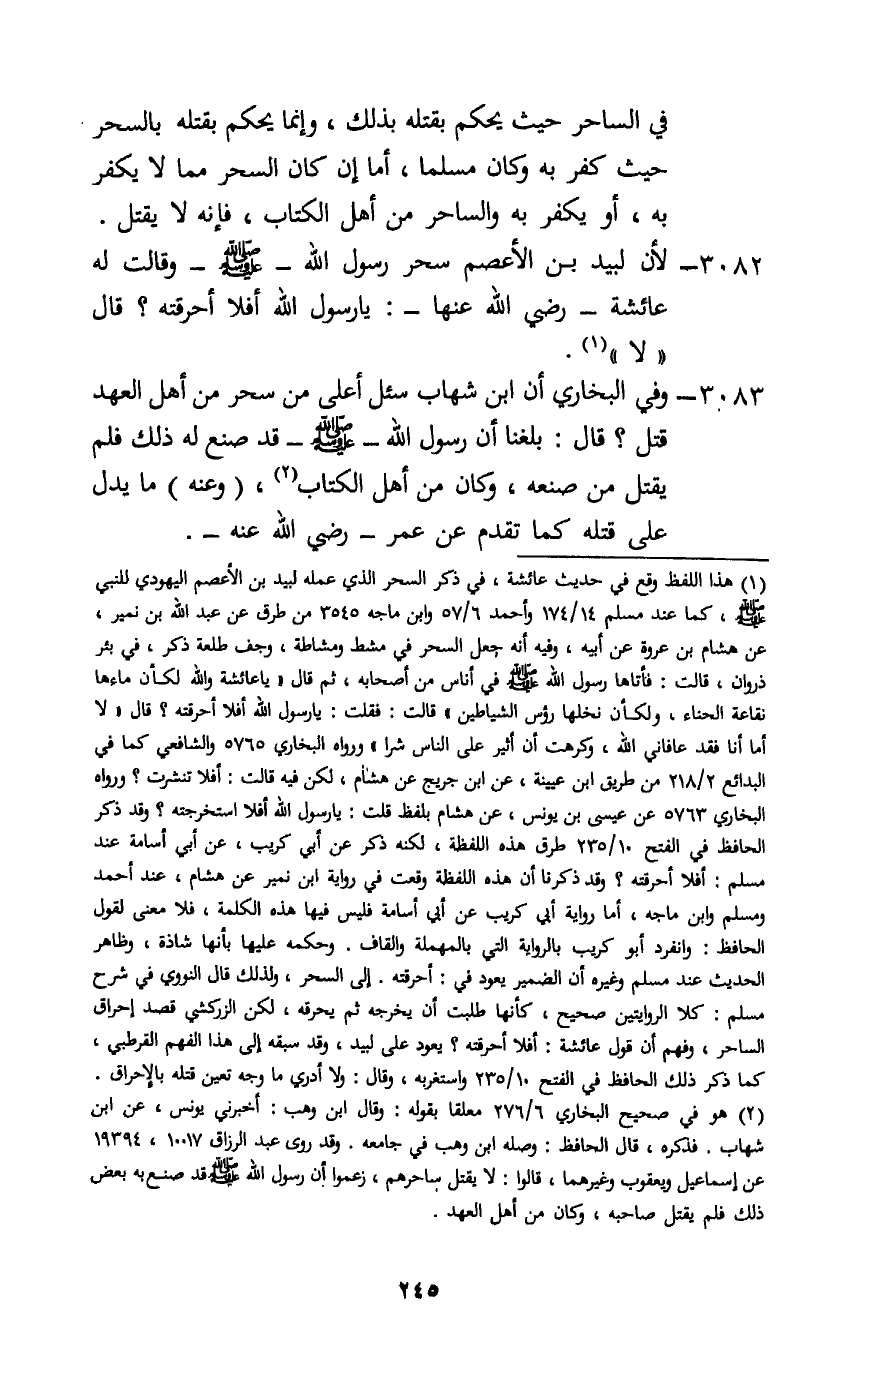 في الساحر حيث يحكم بقتله بذلك ، وإنما يحكم بقتله بالسحر
حيث كفر به وكان مسلما ، أما إن كان السحر مما لا يكفر
به ، أو يكفر به والساحر من أهل الكتاب ، فإنه لا يقتل .
٣٠٨٢ – لأن لبيد بن الأعصم سحر رسول الله – ﷺ – وقالت له
عائشة – رضي الله عنها – : يارسول الله أفلا أحرقته ؟ قال
« لا »(١) .
٣٠٨٣ – وفي البخاري أن ابن شهاب سئل أعلى من سحر من أهل العهد
قتل ؟ قال : بلغنا أن رسول الله – ﷺ – قد صنع له ذلك فلم
يقتل من صنعه ، وكان من أهل الكتاب(٢) ، ( وعنه ) ما يدل
على قتله كما تقدم عن عمر – رضي الله عنه – .
(١) هذا اللفظ وقع في حديث عائشة ، في ذكر السحر الذي عمله لبيد بن الأعصم اليهودي للنبي
ﷺ ، كما عند مسلم ١٧٤/١٤ وأحمد ٥٧/٦ وابن ماجه ٣٥٤٥ من طرق عن عبد الله بن نمير ،
عن هشام بن عروة عن أبيه ، وفيه أنه جعل السحر في مشط ومشاطة ، وجف طلعة ذكر ، في بئر
ذروان ، قالت : فأتاها رسول الله ﷺ في أناس من أصحابه ، ثم قال « ياعائشة والله لكأن ماءها
نقاعة الحناء ، ولكأن نخلها رؤس الشياطين » قالت : فقلت : يارسول الله أفلا أحرقته ؟ قال « لا
أما أنا فقد عافاني الله ، وكرهت أن أثير على الناس شرا » ورواه البخاري ٥٧٦٥ والشافعي كما في
البدائع ٢١٨/٢ من طريق ابن عيينة ، عن ابن جريج عن هشام ، لكن فيه قالت : أفلا تنشرت ؟ ورواه
البخاري ٥٧٦٣ عن عيسى بن يونس ، عن هشام بلفظ قلت : يارسول الله أفلا استخرجته ؟ وقد ذكر
الحافظ في الفتح ٢٣٥/١٠ طرق هذه اللفظة ، لكنه ذكر عن أبي كريب ، عن أبي أسامة عند
مسلم : أفلا أحرقته ؟ وقد ذكرنا أن هذه اللفظة وقعت في رواية ابن نمير عن هشام ، عند أحمد
ومسلم وابن ماجه ، أما رواية أبي كريب عن أبي أسامة فليس فيها هذه الكلمة ، فلا معنى لقول
الحافظ : وانفرد أبو كريب بالرواية التي بالمهملة والقاف . وحكمه عليها بأنها شاذة ، وظاهر
الحديث عند مسلم وغيره أن الضمير يعود في : أحرقته . إلى السحر ، ولذلك قال النووي في شرح
مسلم : كلا الروايتين صحيح ، كأنها طلبت أن يخرجه ثم يحرقه ، لكن الزركشي قصد إحراق
الساحر ، وفهم أن قول عائشة : أفلا أحرقته ؟ يعود على لبيد ، وقد سبقه إلى هذا الفهم القرطبي ،
كما ذكر ذلك الحافظ في الفتح ٢٣٥/١٠ واستغربه ، وقال : ولا أدري ما وجه تعين قتله بالإحراق .
(٢) هو في صحيح البخاري ٢٧٦/٦ معلقا بقوله : وقال ابن وهب : أخبرني يونس ، عن ابن
شهاب . فذكره ، قال الحافظ : وصله ابن وهب في جامعه . وقد روى عبد الرزاق ١٠٠١٧ ، ١٩٣٩٤
عن إسماعيل ويعقوب وغيرهما ، قالوا : لا يقتل ساحرهم ، زعموا أن رسول الله ﷺ قد صنع به بعض
ذلك فلم يقتل صاحبه ، وكان من أهل العهد .
٢٤٥